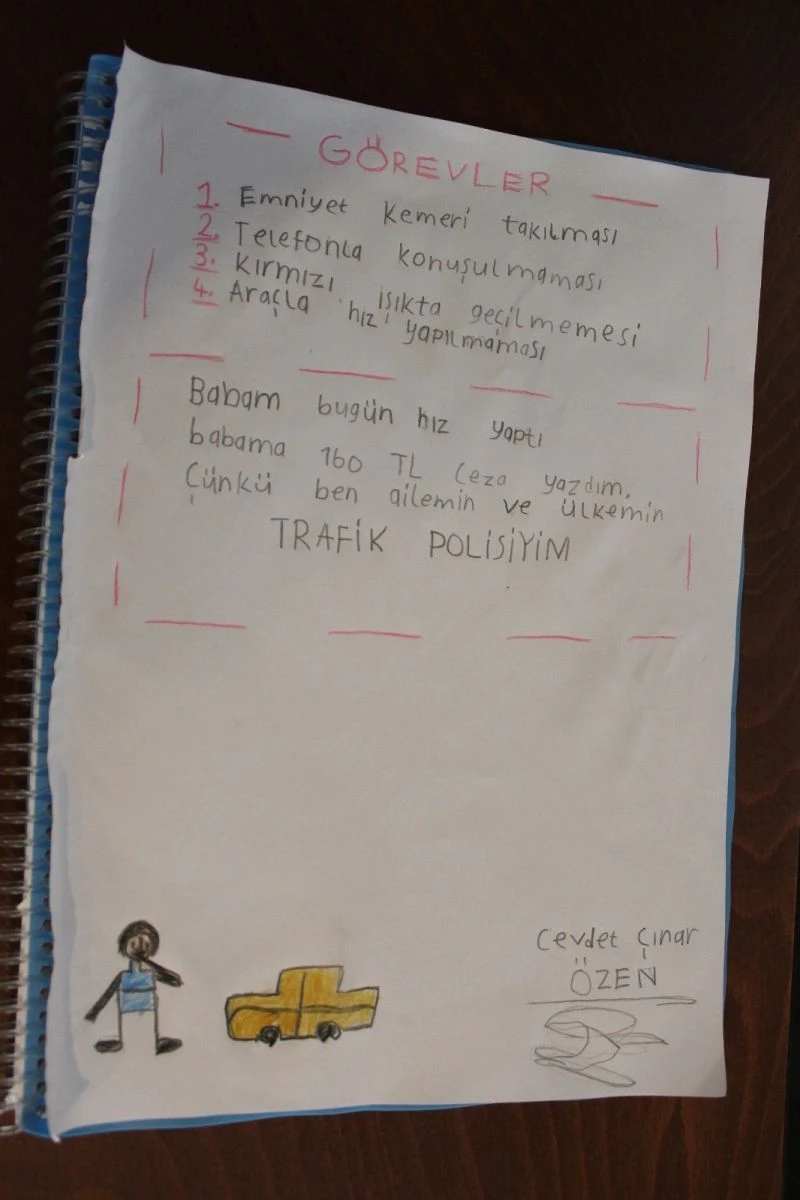 GÖREVLER
1. Emniyet kemeri takılması
2. Telefonla konuşulmaması
3. Kırmızı ışıkta geçilmemesi
4. Araçla hız yapılmaması
Babam bugün hız yaptı
babama 160 TL Ceza yazdım.
Çünkü ben ailemin ve ülkemin
TRAFİK POLİSİYİM
Cevdet Çınar
ÖZEN